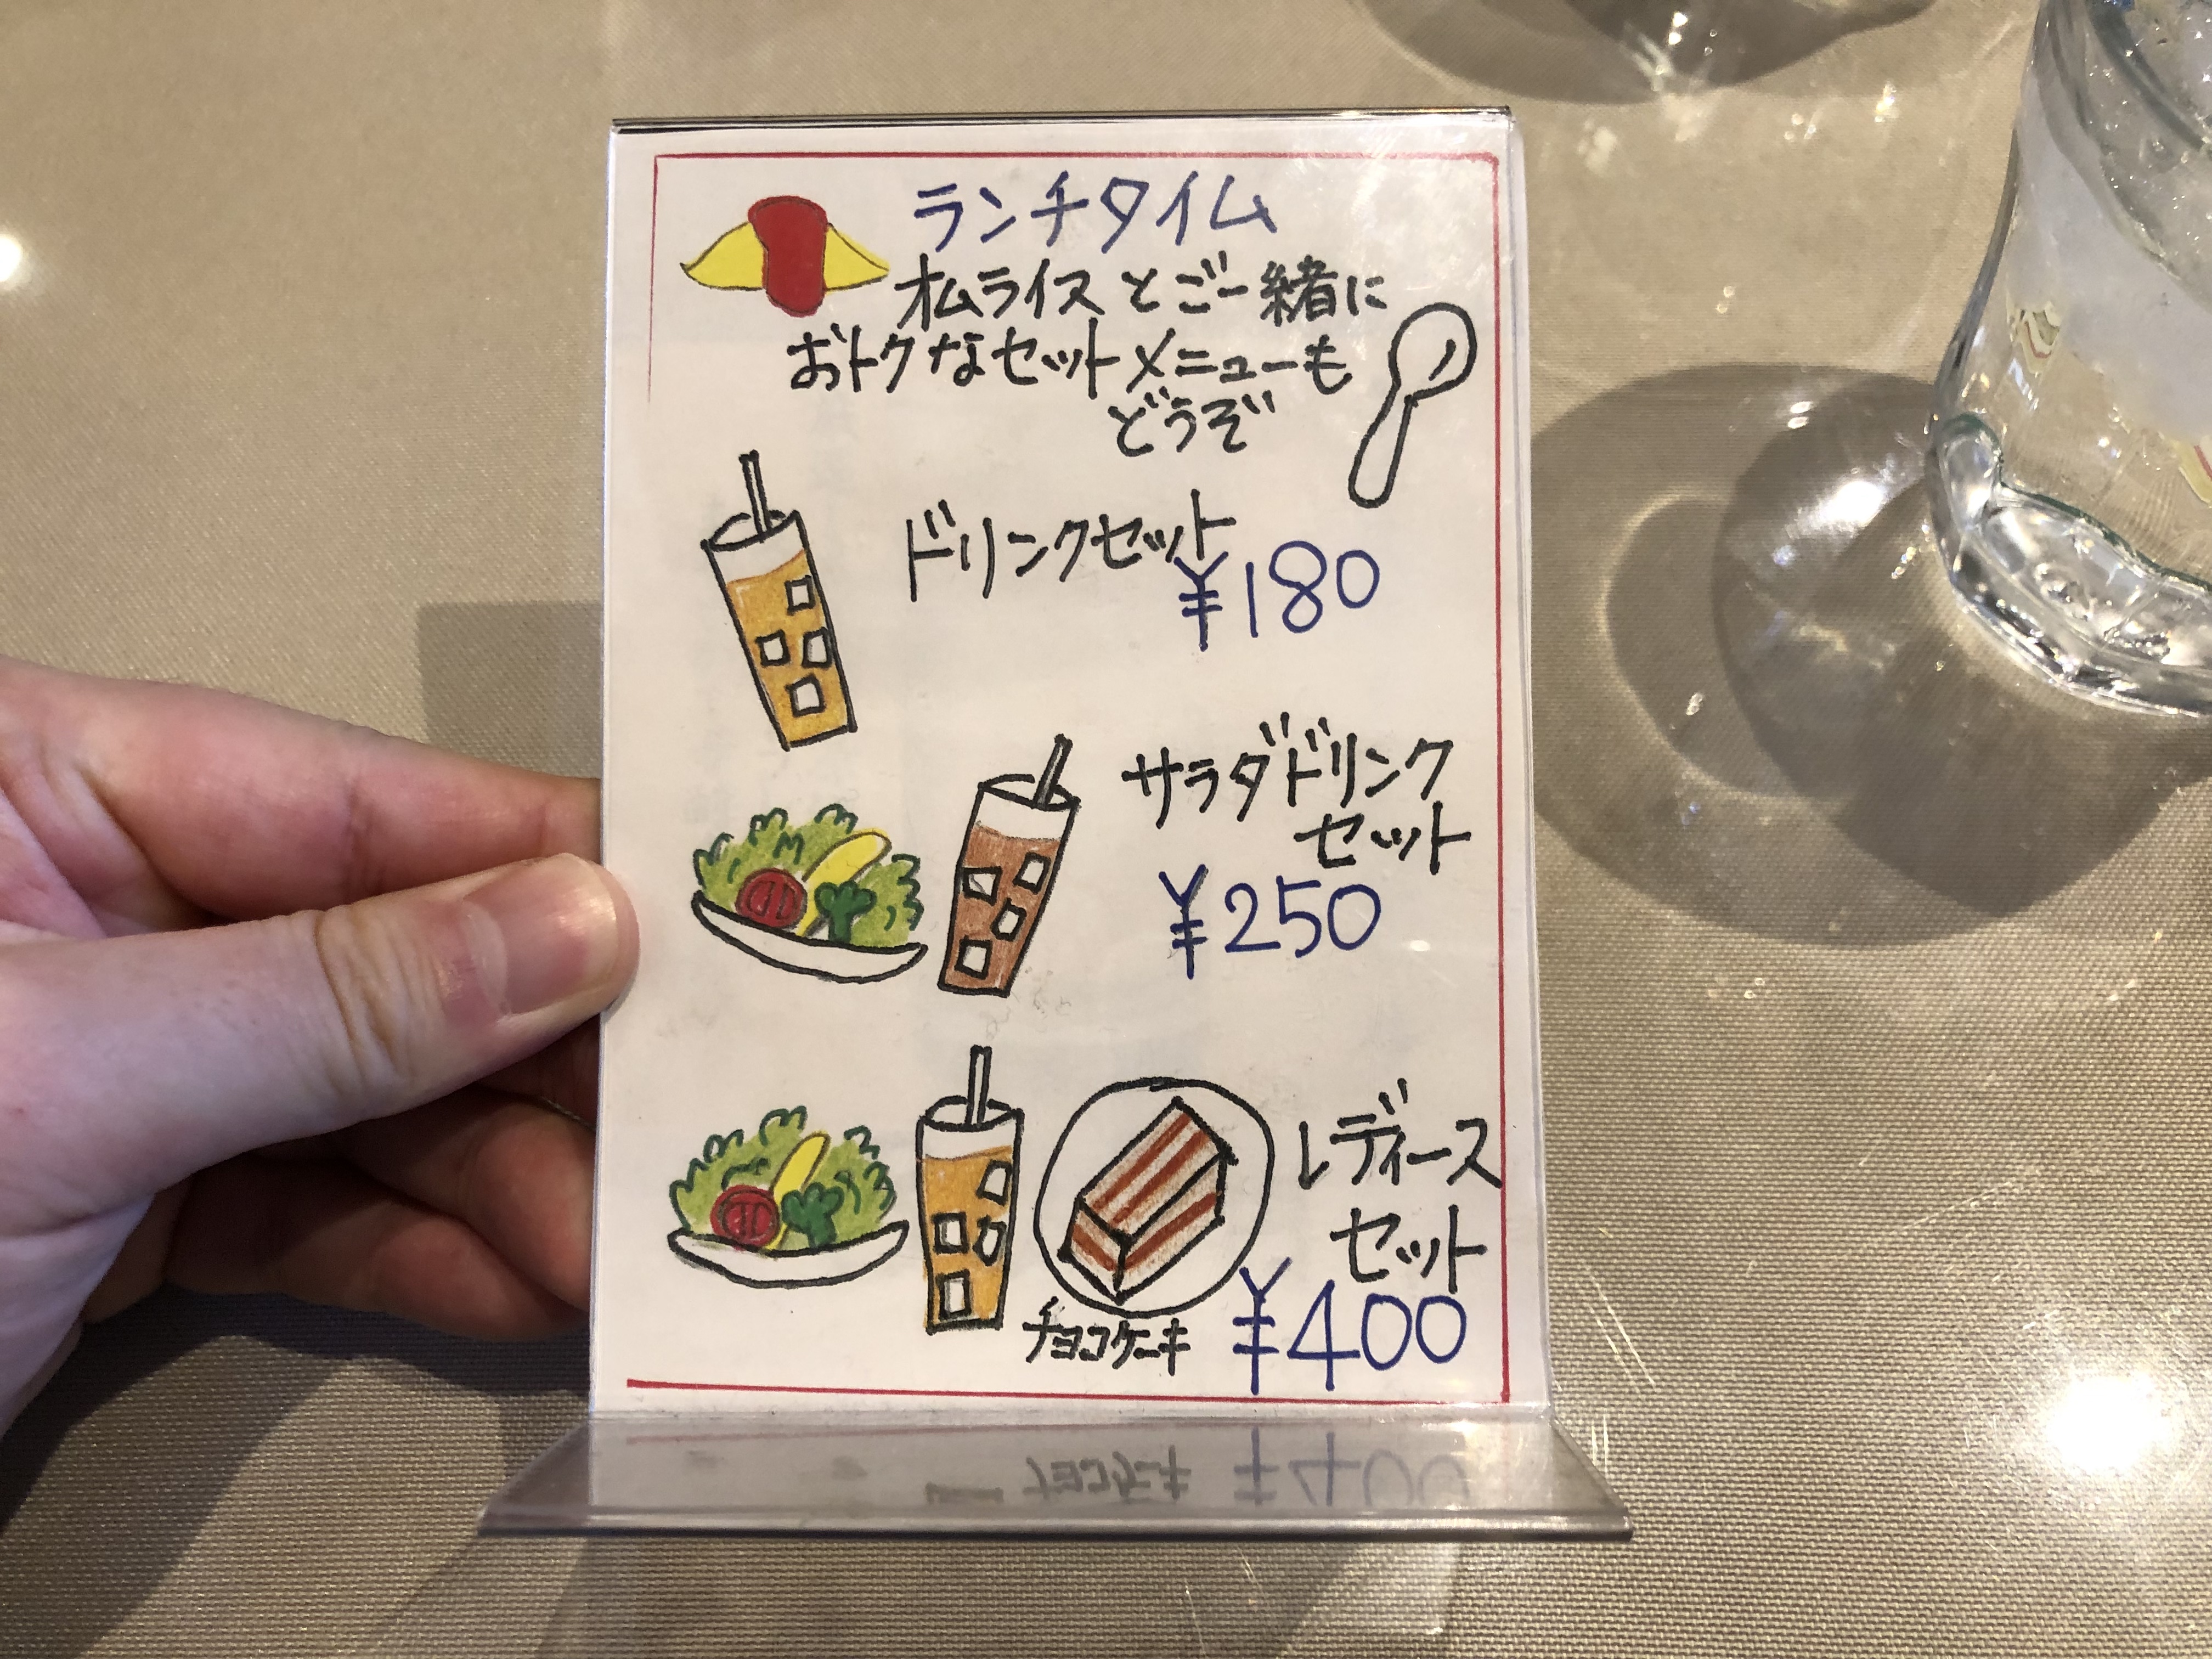 ランチタイム
オムライスとご一緒に
おトクなセットメニューも
どうぞ
ドリンクセット
¥180
サラダドリンク
セット
¥250
レディース
セット
チョコケーキ
¥400